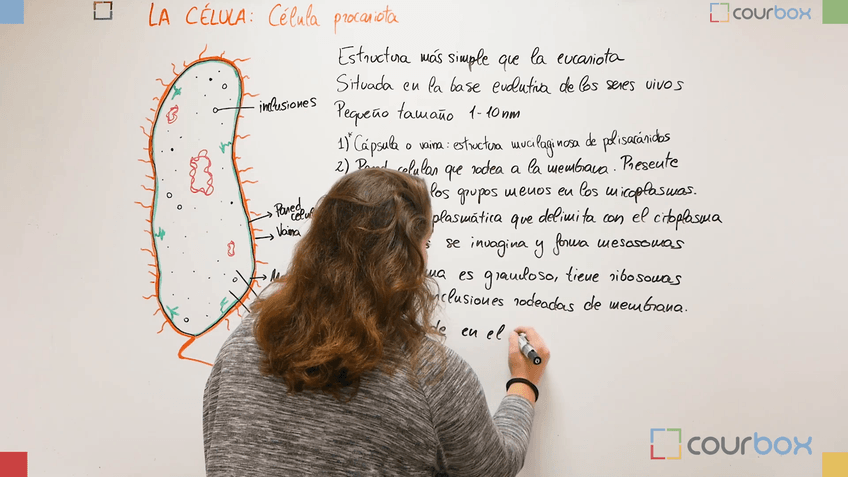 LA CÉLULA: Célula procariota
courbox
Estructura más simple que la eucariota
Situada en la base evolutiva de los seres vivos
Pequeño tamaño 1-10nm
inclusiones
1)* Cápsula o vaina: estructura mucilaginosa de polisacáridos
2) Pared celular que rodea a la membrana. Presente
los grupos menos en los micoplasmas.
Pared
plasmática que delimita con el citoplasma
Vaina
se invagina y forma mesosomas
es granuloso, tiene ribosomas
inclusiones rodeadas de membrana.
en el
courbox